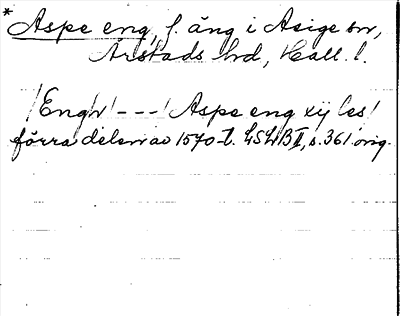 * Aspe eng, f. äng i Asige sn,
Årstads hd, Hall. l.
/Engr/ - - - / Aspe eng xij les /
förra delen av 1570-t. LSHB II, s. 361 orig.